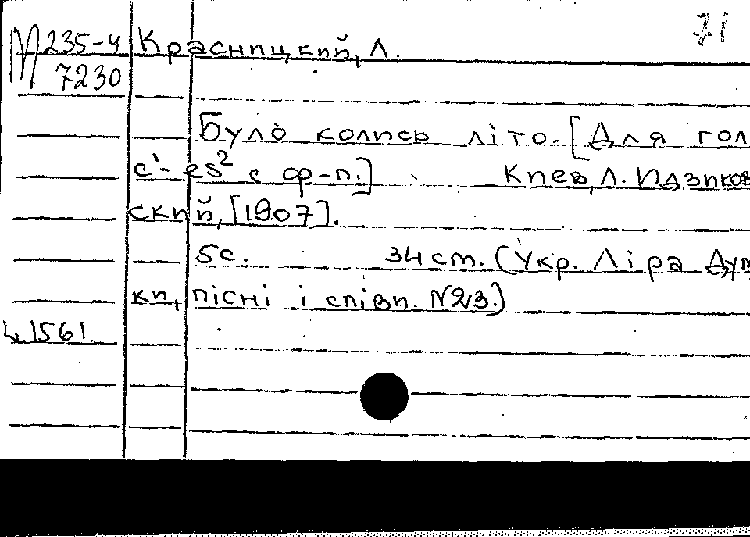 71
М 235-4 Красницкий, Л.
7230
Було колись літо. [Для гол
с¹-es² с ф-п.] Киев, Л. Идзиков
ский, [1907].
5с. 34 см. (Укр. Ліра Дум
ки, пісні і співи. №23.)
ч. 1561